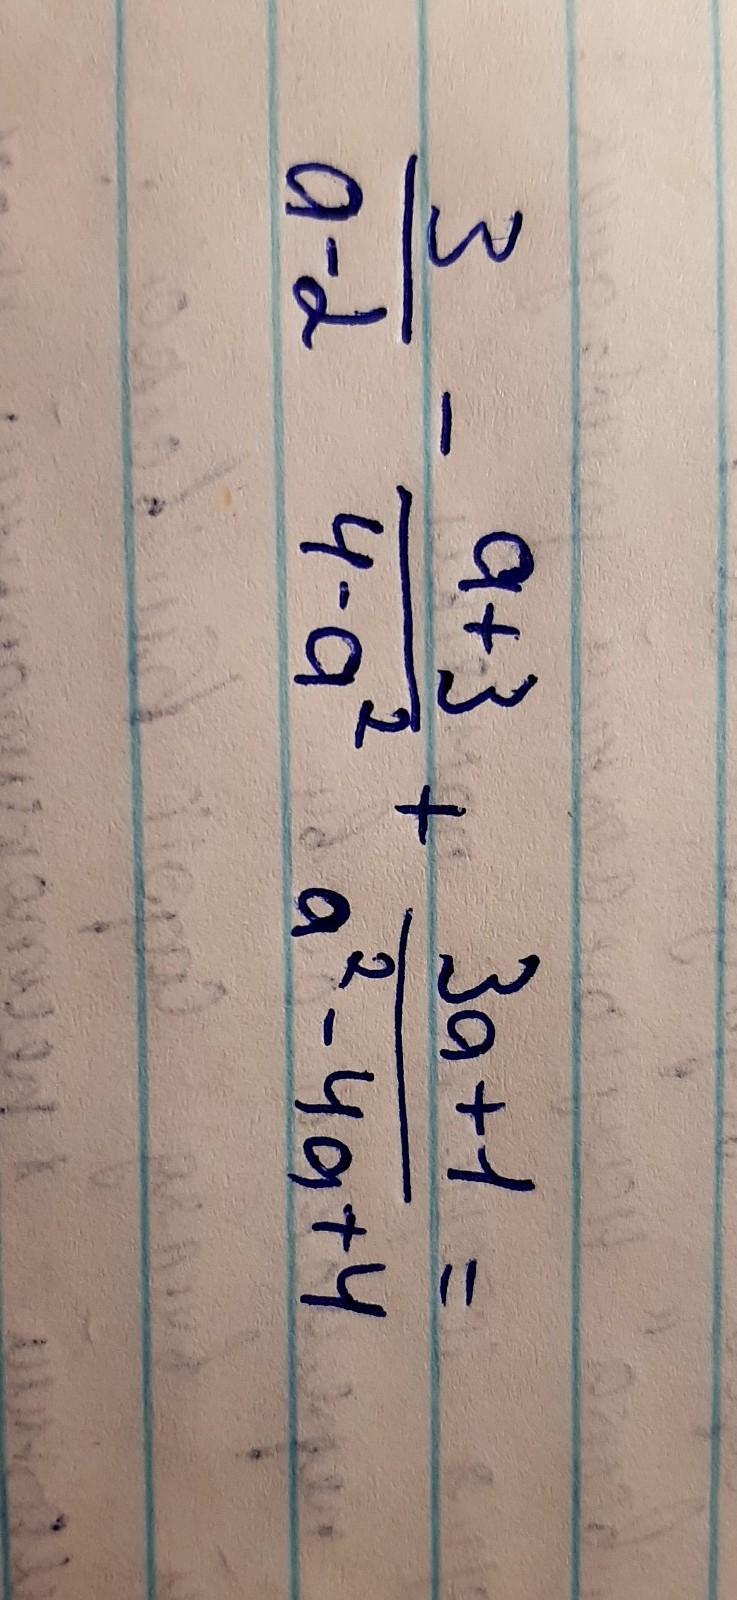 3/(a-2) - (a+3)/(4-a²) + (3a+1)/(a²-4a+4) =